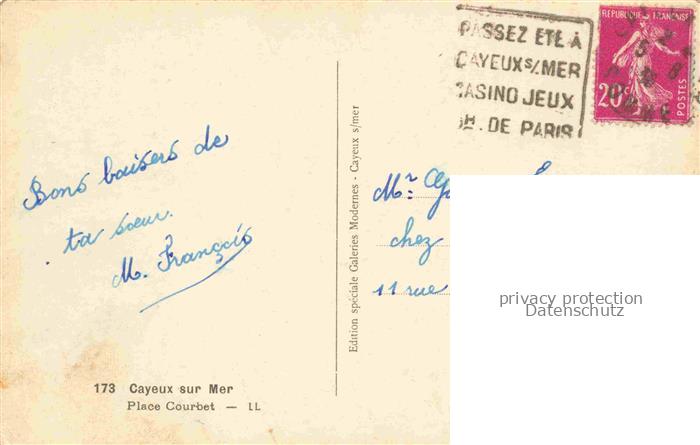 Bons baisers de
ta sœur.
M. François
173 Cayeux sur Mer
Place Courbet — LL
Edition spéciale Galeries Modernes - Cayeux s/mer
PASSEZ ETE À
CAYEUX S/MER
CASINO JEUX
DE PARIS
REPUBLIQUE FRANÇAISE
20c
POSTES
Mr
chez
11 rue
privacy protection
Datenschutz